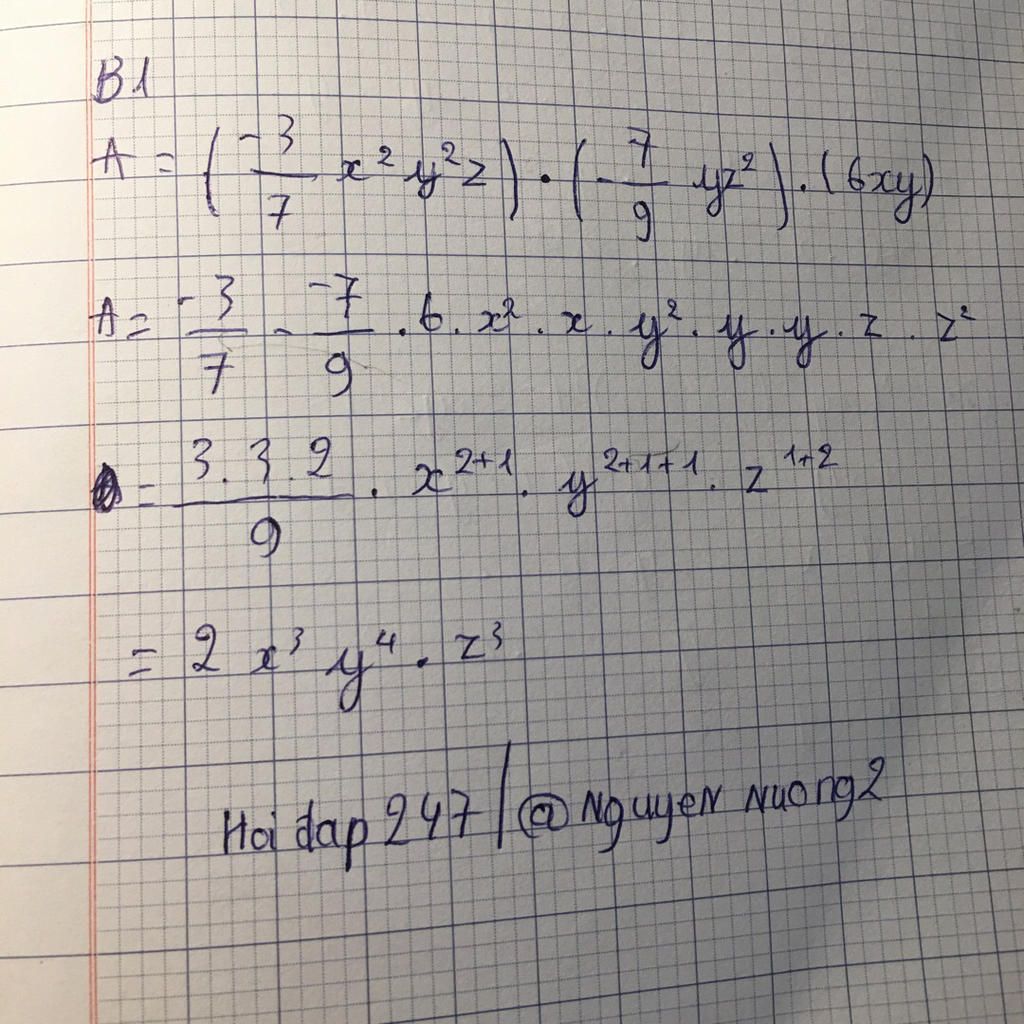 B1
A = (-3/7 x² y² z) · (-7/9 yz²) . (6xy)
A = -3/7 - -7/9 . 6 . x² . x . y² . y . y . z . z²
= 3.3.2/9 . x²⁺¹ . y²⁺¹⁺¹ . z¹⁺²
= 2 x³ y⁴ . z³
Hoi dap 247 / @ Nguyen Nuong2